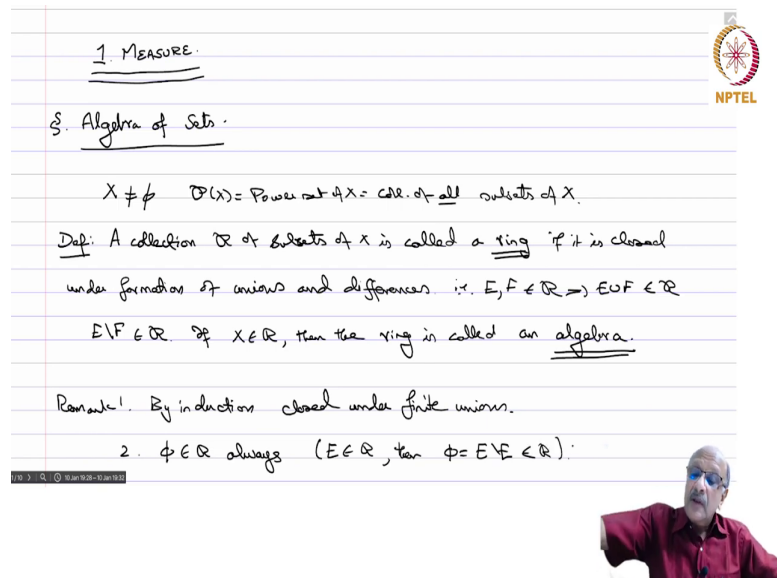 1. MEASURE.
NPTEL
§. Algebra of Sets.
X ≠ φ P(X) = Power set of X = coll. of all subsets of X.
Def: A collection R of subsets of X is called a ring if it is closed
under formation of unions and differences. i.e. E, F ∈ R => E∪F ∈ R
E\F ∈ R. If X ∈ R, then the ring is called an algebra.
Remark 1. By induction closed under finite unions.
2. φ ∈ R always (E ∈ R, then φ = E\E ∈ R).
1/10 10 Jan 19:28 – 10 Jan 19:32